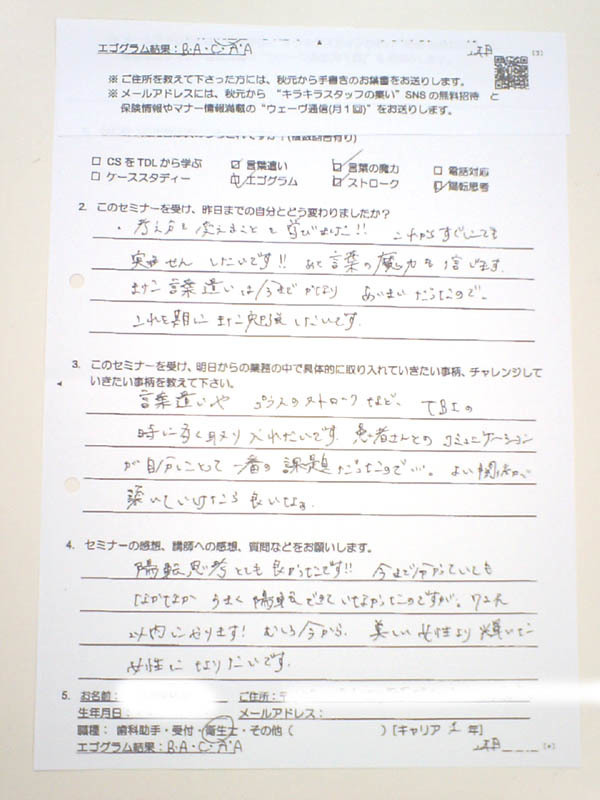 エゴグラム結果：B・A・C・A・A
※ ご住所を教えて下さった方には、秋元から手書きのお葉書をお送りします。
※ メールアドレスには、秋元から “キラキラスタッフの集い” SNS の無料招待 と
保険情報やマナー情報満載の“ウェーヴ通信(月１回)” をお送りします。
□ CS を TDL から学ぶ ☑ 言葉遣い ☑ 言葉の魔力 □ 電話対応
□ ケーススタディー ☑ エゴグラム ☑ ストローク ☑ 陽転思考
2. このセミナーを受け、昨日までの自分とどう変わりましたか？
・考え方を変えることを学びました!! これからすぐにでも
実践したいです!! あと言葉の魔力も信じます。
また言葉遣いは今までかなり あいまいだったので、
これを期にまた勉強したいです。
3. このセミナーを受け、明日からの業務の中で具体的に取り入れていきたい事柄、チャレンジして
いきたい事柄を教えて下さい。
言葉遣いや プラスのストロークなど、TBIの
時に多く取り入れたいです。患者さんとのコミュニケーション
が自分にとって一番の課題だったので…。よい関係が
築いていけたら良いなぁ
4. セミナーの感想、講師への感想、質問などをお願いします。
陽転思考とても良かったです!! 今まで分かっていても
なかなか うまく陽転できていなかったのですが、72h
以内にやります! むしろ今から。美しい女性より輝いた
女性になりたいです。
5. お名前： ご住所：〒
生年月日： メールアドレス：
職種： 歯科助手・受付・衛生士・その他（ ）[キャリア 1 年]
エゴグラム結果：B・A・C・A・A